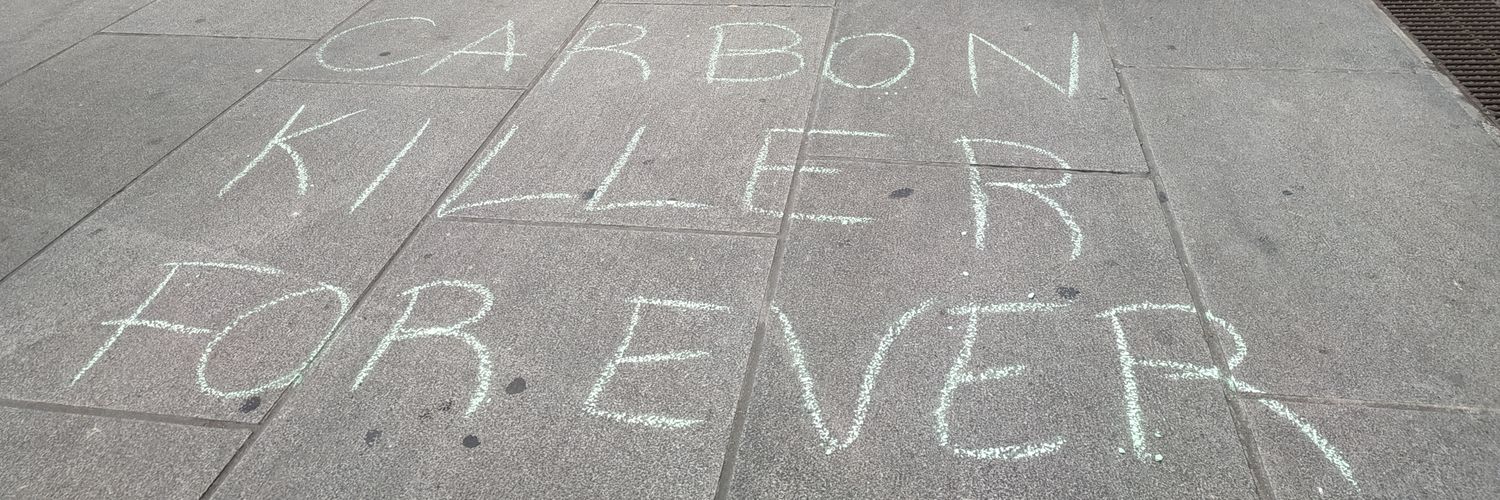 CARBON
KILLER
FOREVER